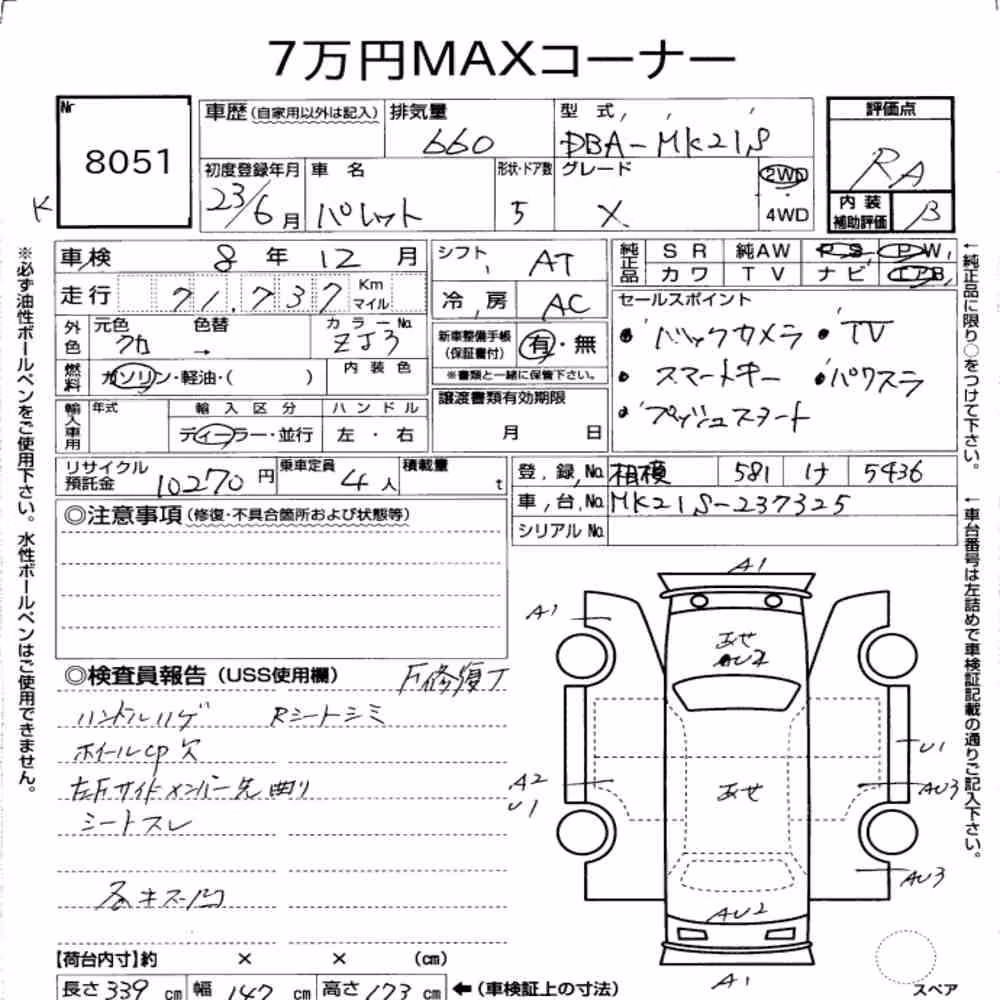 7万円MAXコーナー
Nr 8051
車歴(自家用以外は記入) 排気量 660 型式 DBA-MK21S 評価点 RA
初度登録年月 23/6月 車名 パレット 形状・ドア数 5 グレード X 2WD・4WD
内装補助評価 B
K
車検 8年12月 シフト AT 純正品 SR 純AW PS PW
走行 71,737 Km マイル 冷房 AC カワ TV ナビ エアB
外色 元色 クロ 色替 → カラーNo. ZJ3 新車整備手帳(保証書付) 有・無 セールスポイント
※書類と一緒に保管下さい。
・バックカメラ ・TV
・スマートキー ・パワスラ
・プッシュスタート
燃料 ガソリン・軽油・( ) 内装色 譲渡書類有効期限 月 日
輸入車用 年式 輸入区分 ハンドル
ディーラー・並行 左・右
リサイクル預託金 10270円 乗車定員 4人 積載量 t 登録No. 相模 581 け 5436
車台No. MK21S-237325
シリアルNo.
◎注意事項(修復・不具合箇所および状態等)
◎検査員報告(USS使用欄) F修復了
ハンドルハゲ Rシートシミ
ホイールcp欠
左Fサイドメンバー先曲り
シートスレ
各キズ凹
A1
A1
あせ
AU2
U1
A2
U1
AU3
あせ
AU3
AU2
A1
スペア
【荷台内寸】約 × × (cm)
長さ339cm 幅147cm 高さ173cm ←(車検証上の寸法)
※必ず油性ボールペンをご使用下さい。水性ボールペンはご使用できません。
←純正品に限り○をつけて下さい。
←車台番号は左詰めで車検証記載の通りご記入下さい。